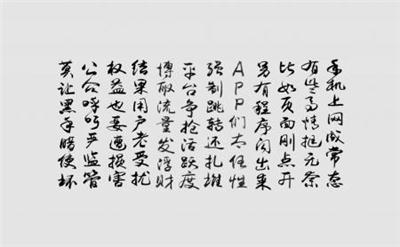 手机上网做常态
有些事情挺无奈
比如页面刚点开
另有程序闯出来
APP们太任性
强制跳转还扎堆
平台争抢活跃度
博取流量发浮财
结果用户老受扰
权益也要遭损害
公众呼吁严监管
莫让黑手暗使坏